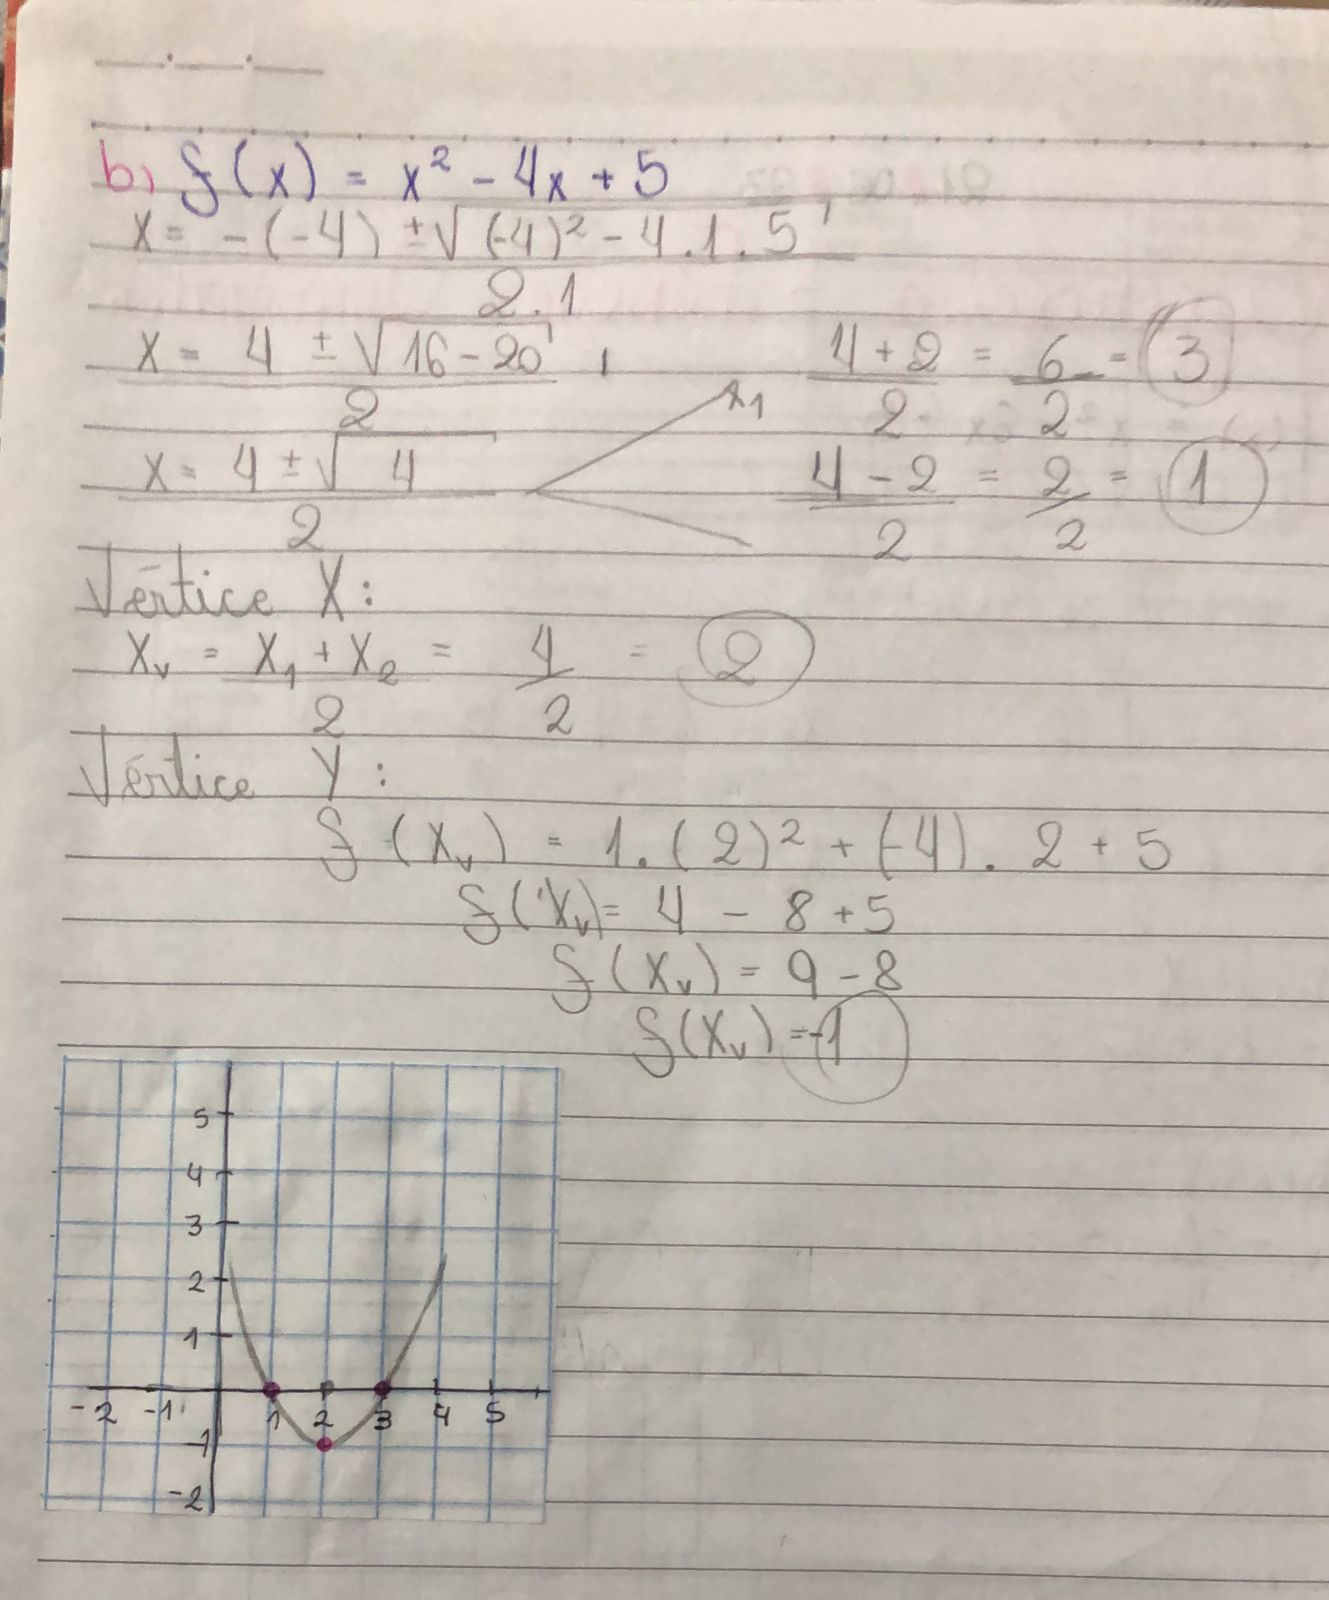 b) f(x) = x² - 4x + 5
x = -(-4) ± √(-4)² - 4.1.5
2.1
x = 4 ± √16 - 20
2
x = 4 ± √4
2
x1
4 + 2 = 6 = 3
2 2
4 - 2 = 2 = 1
2 2
Vértice X:
Xv = X1 + X2 = 4 = 2
2 2
Vértice Y:
f(Xv) = 1.(2)² + (-4). 2 + 5
f(Xv) = 4 - 8 + 5
f(Xv) = 9 - 8
f(Xv) = -1
5
4
3
2
1
-2 -1 1 2 3 4 5
-1
-2